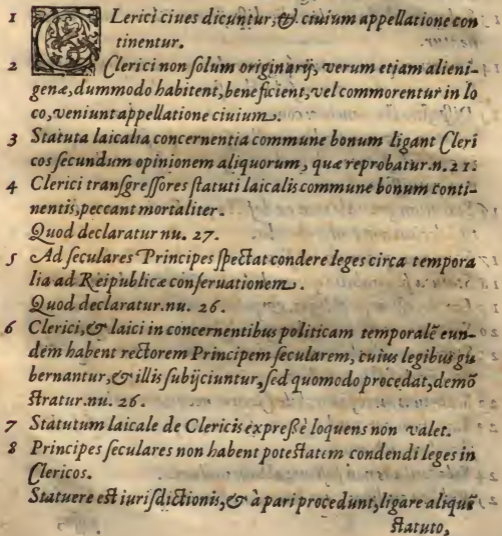 1 CLerici ciues dicuntur, & ciuium appellatione con
tinentur.
2 Clerici non solum originarij, verum etiam alieni-
genæ, dummodo habitent, beneficient, vel commorentur in lo
co, veniunt appellatione ciuium.
3 Statuta laicalia concernentia commune bonum ligant Cleri
cos secundum opinionem aliquorum, quæ reprobatur.n.21.
4 Clerici transgressores statuti laicalis commune bonum conti-
nentis, peccant mortaliter.
Quod declaratur nu. 27.
5 Ad seculares Principes spectat condere leges circa tempora
lia ad Reipublicæ conseruationem.
Quod declaratur.nu. 26.
6 Clerici, & laici in concernentibus politicam temporalē eun-
dem habent rectorem Principem secularem, cuius legibus gu
bernantur, & illis subijciuntur, sed quomodo procedat, demō
stratur.nu. 26.
7 Statutum laicale de Clericis expressè loquens non valet.
8 Principes seculares non habent potestatem condendi leges in
Clericos.
Statuere est iurisdictionis, & à pari procedunt, ligare aliquē
statuto,